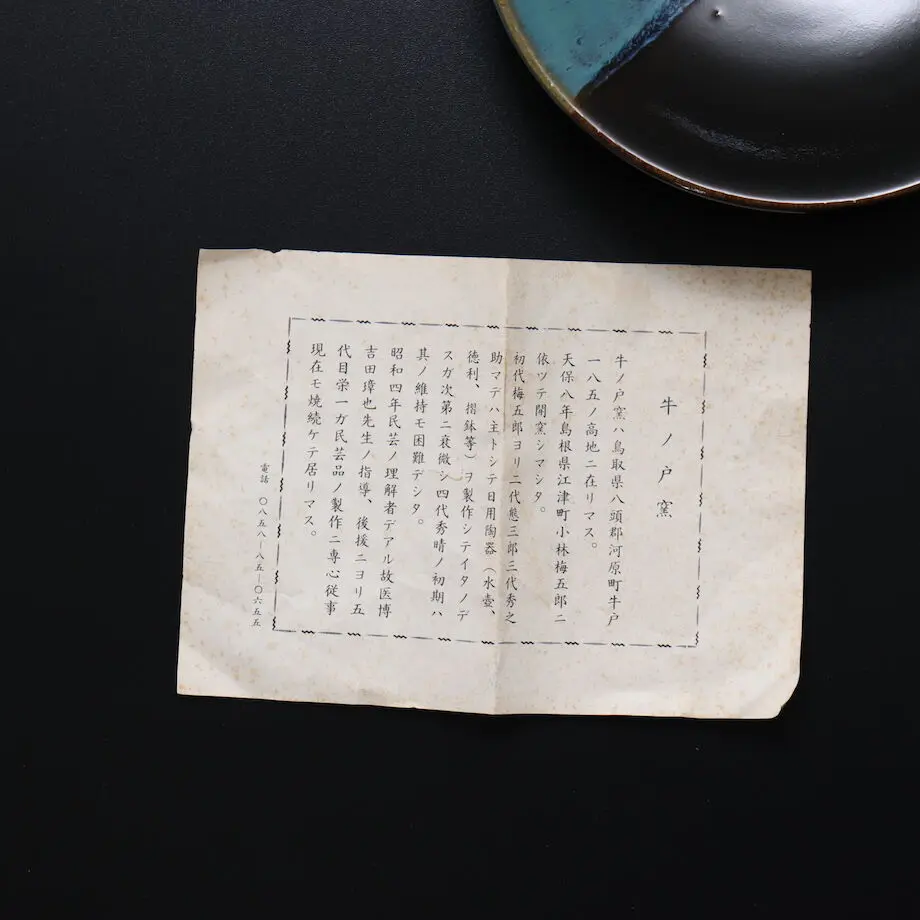 牛ノ戸窯
牛ノ戸窯ハ鳥取県八頭郡河原町牛戸
一八五ノ高地ニ在リマス。
天保八年島根県江津町小林梅五郎ニ
依ツテ開窯シマシタ。
初代梅五郎ヨリ二代熊三郎三代秀之
助マデハ主トシテ日用陶器（水壷、
徳利、摺鉢等）ヲ製作シテイタノデ
スガ次第ニ衰微シ四代秀晴ノ初期ハ
其ノ維持モ困難デシタ。
昭和四年民芸ノ理解者デアル故医博
吉田璋也先生ノ指導、後援ニヨリ五
代目栄一ガ民芸品ノ製作ニ専心従事
現在モ焼続ケテ居リマス。
電話 〇八五八―八五―〇六五五